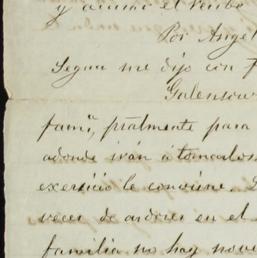 y acuso el recibo
Por Angel
Segun me dijo con
Galenson
fam.ª, pralmente para
adonde irán á tomarlos
exercicio le conviene.
veces de ardores en el
familia no hay nove